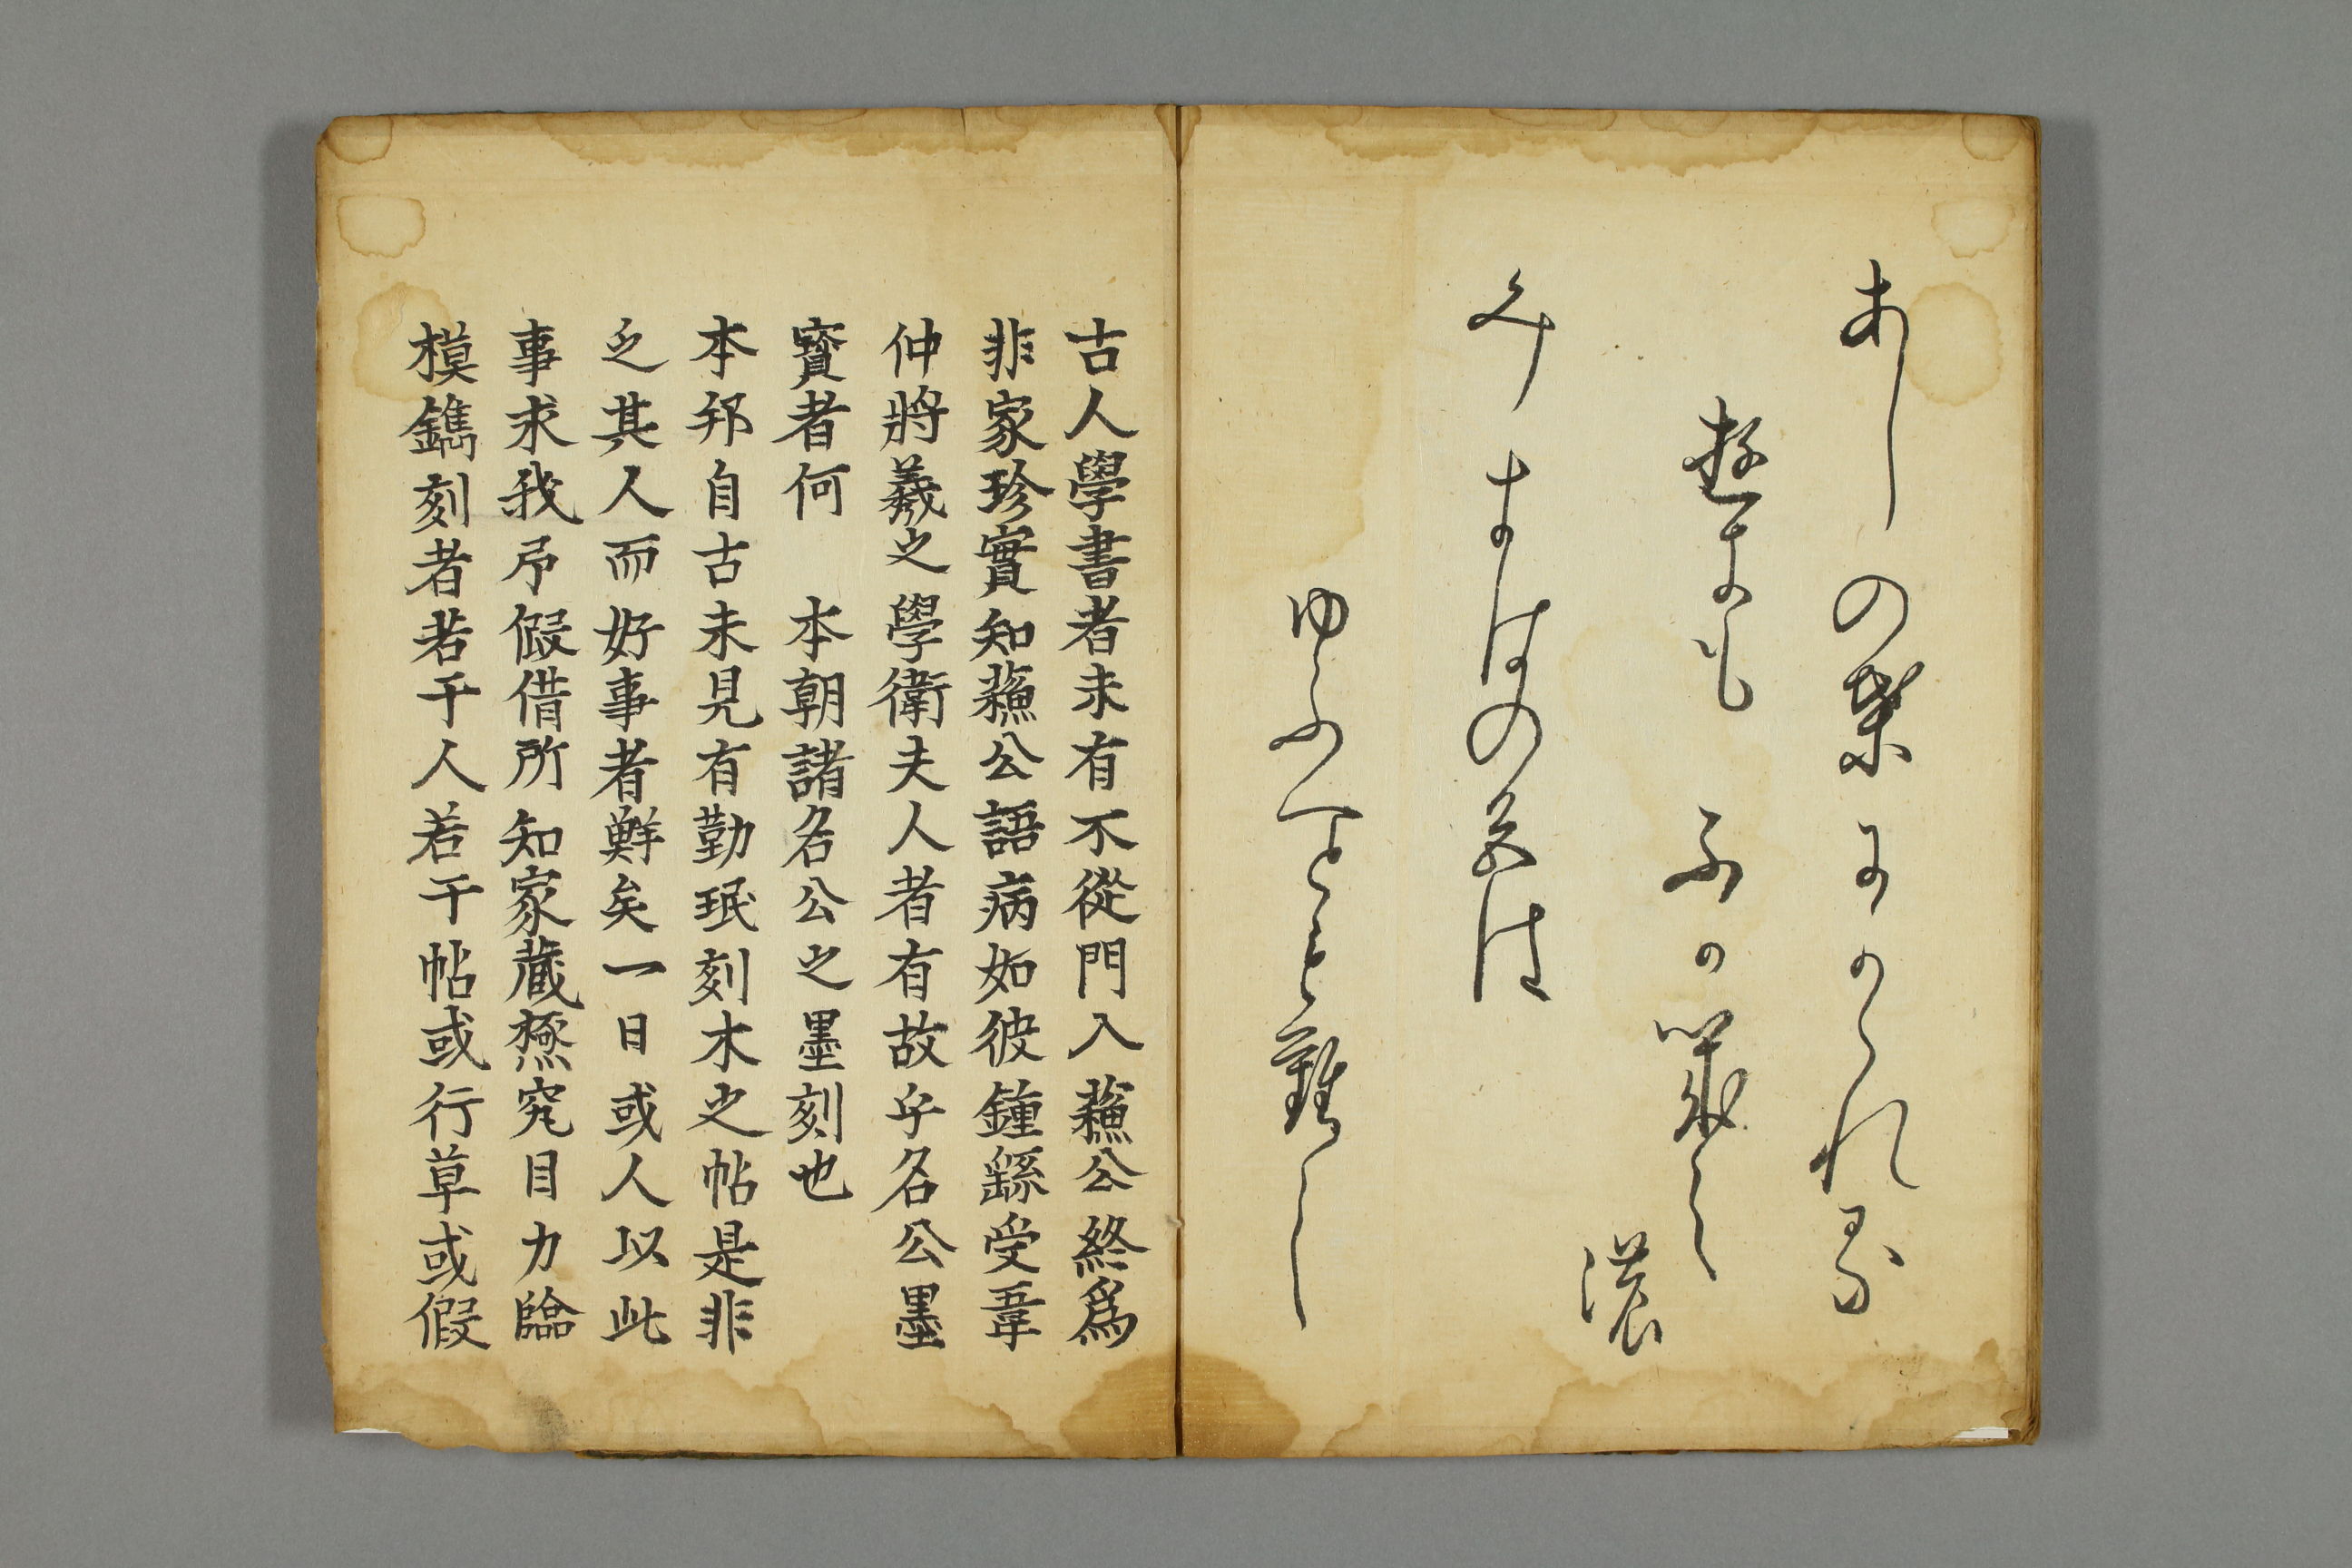 あしの葉にかくれ
濃
みまほの
ゆふへとも難し
古人學書者未有不從門入蘓公終爲
非家珍實知蘓公語病如彼鍾繇受韋
仲將羲之學衛夫人者有故乎名公墨
寳者何　本朝諸名公之墨刻也
本邦自古未見有勤珉刻木之帖是非
乏其人而好事者鮮矣一日或人以此
事求我予假借所知家藏極究目力臨
模鐫刻者若干人若干帖或行草或假